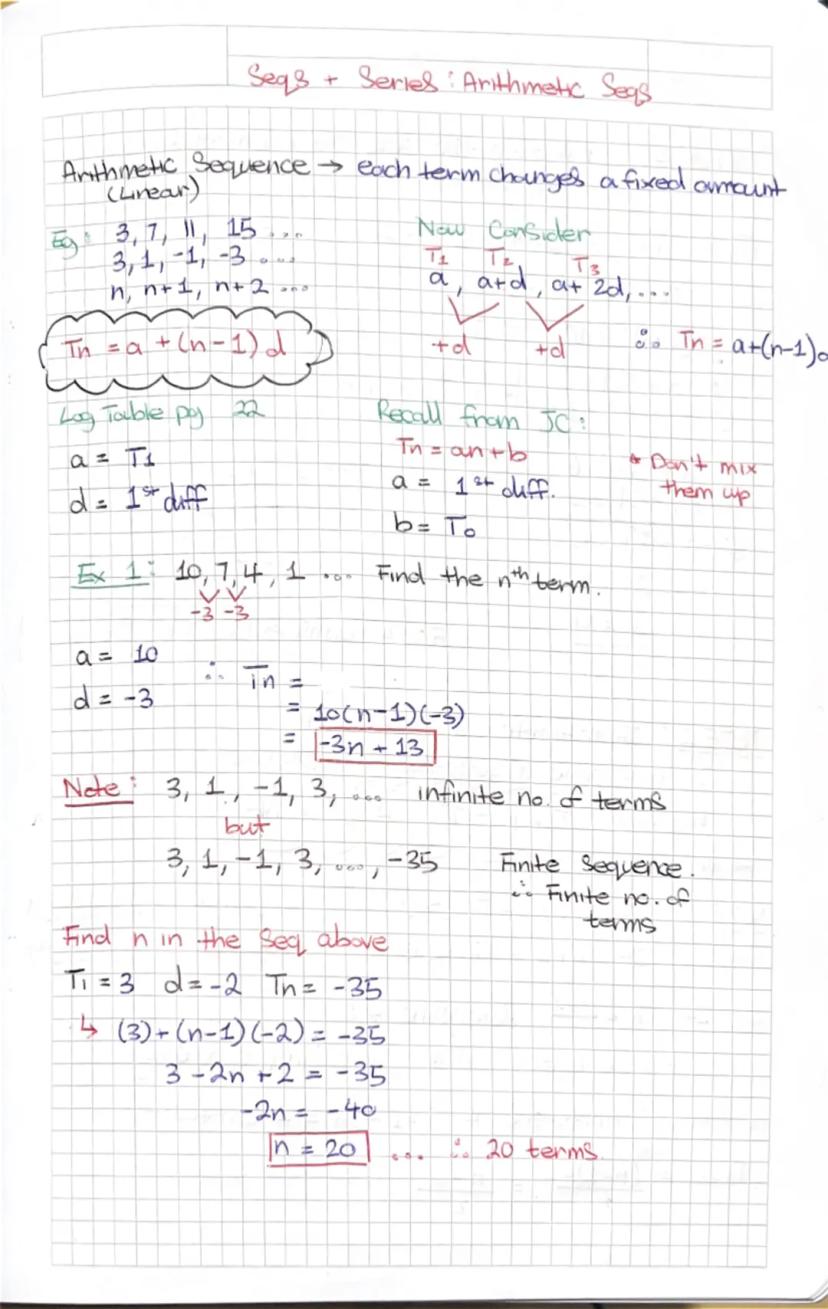 Seqs + Series: Arithmetic Seqs
Arithmetic Sequence → each term changes a fixed amount
(Linear)
Eg: 3, 7, 11, 15 ...
3, 1, -1, -3 ....
n, n+1, n+2 ...
Tn = a + (n-1) d
Now Consider
T1 T2 T3
a, a+d, a+ 2d, ...
+d +d ∴ Tn = a+(n-1)d
Log Table pg 22
a = T1
d = 1st diff
Recall from JC:
Tn = an + b
a = 1st diff.
b = To
* Don't mix
them up
Ex 1: 10, 7, 4, 1 ... Find the nth term.
-3 -3
a = 10
d = -3
∴ Tn =
= 10(n-1)(-3)
= -3n + 13
Note: 3, 1, -1, 3, .... infinite no. of terms
but
3, 1, -1, 3, ..., -35 Finite Sequence.
∴ Finite no. of
terms
Find n in the Seq above
T1 = 3 d = -2 Tn = -35
↳ (3) + (n-1)(-2) = -35
3 - 2n + 2 = -35
-2n = -40
n = 20 ... ∴ 20 terms.